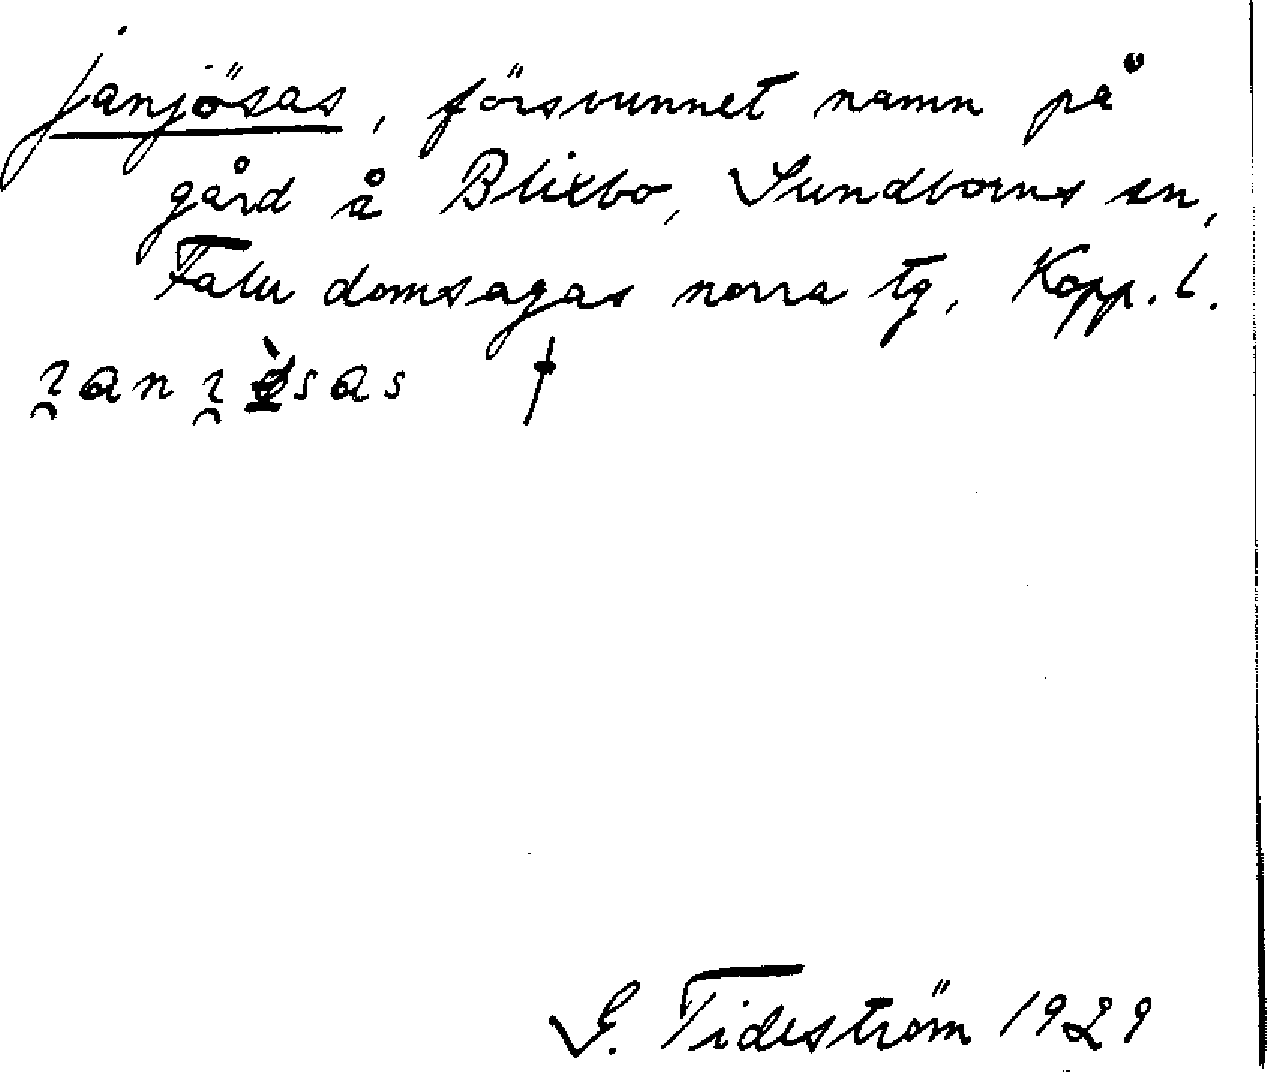 Janjösas, försvunnet namn på
gård å Blixbo, Sundborns sn,
Falu domsagas norra tg, Kopp. l.
†
S. Tideström 1929